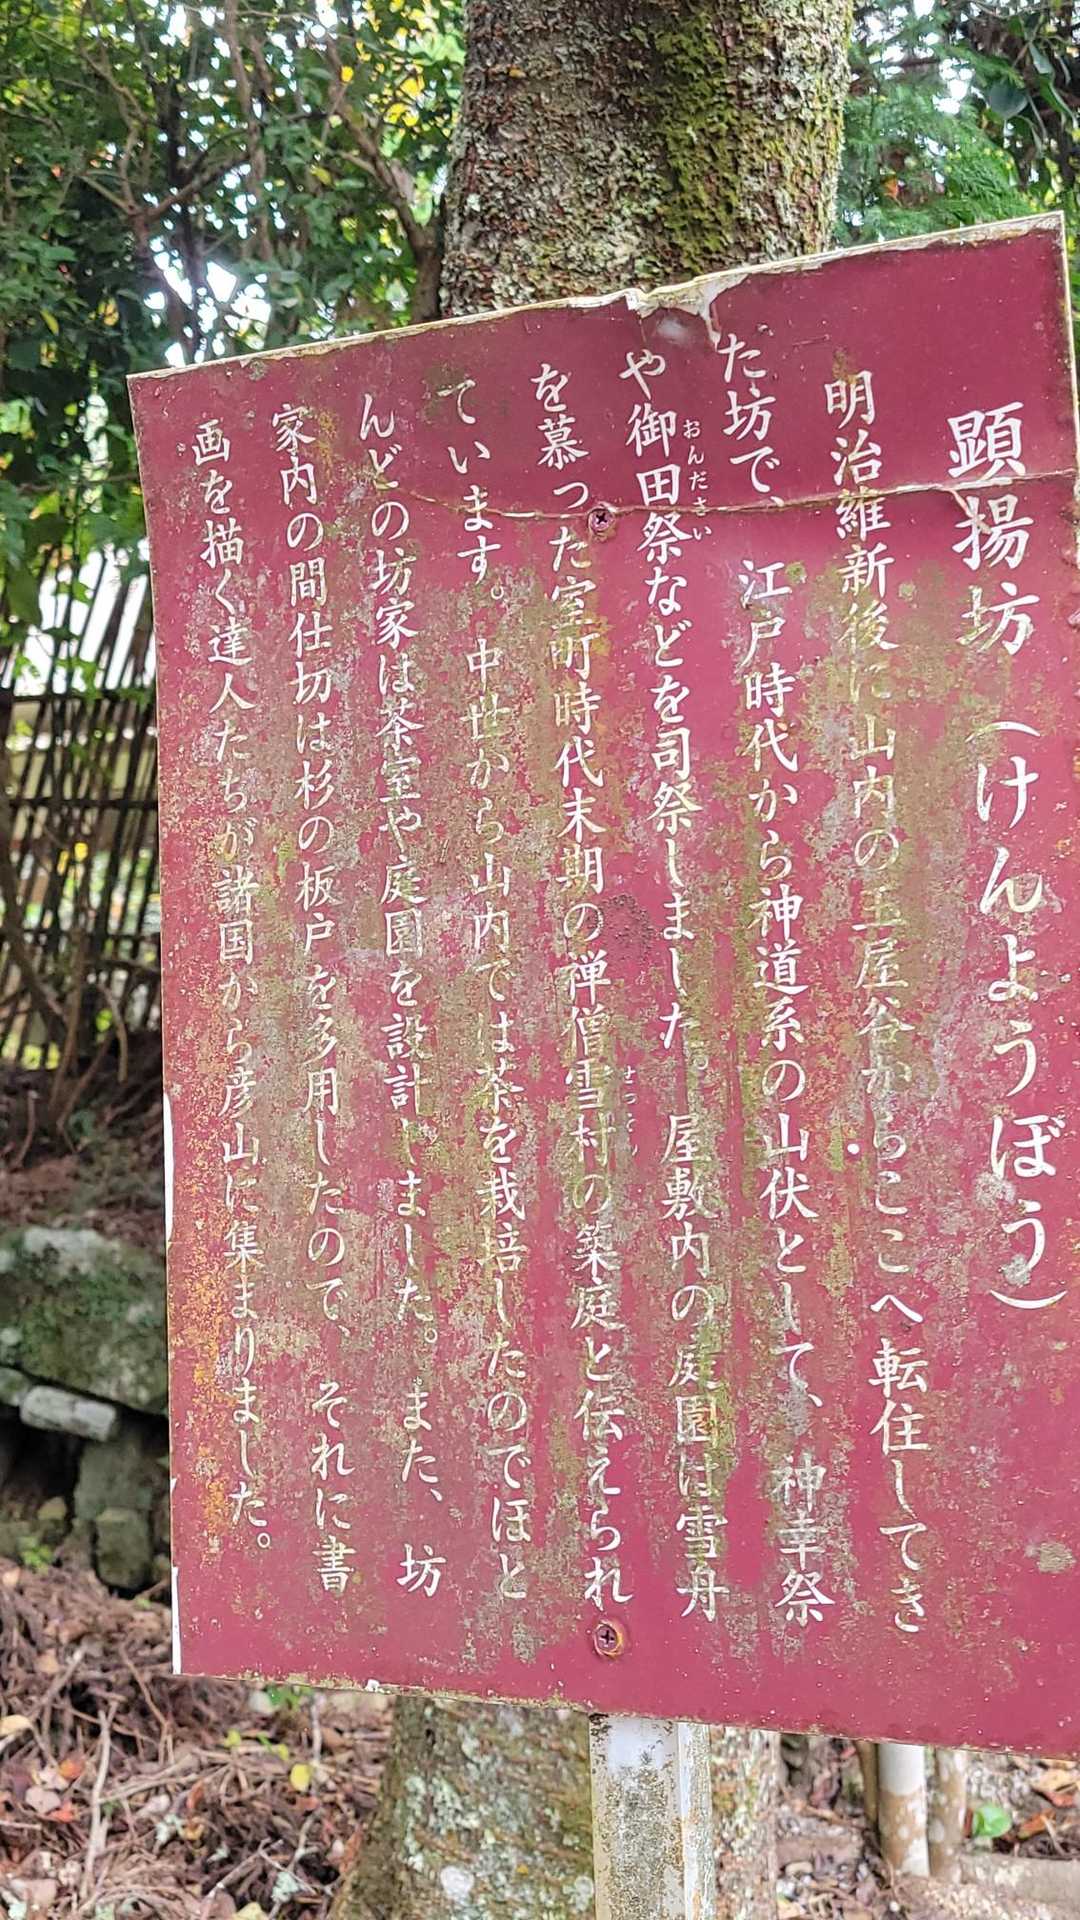 顕揚坊（けんようぼう）
明治維新後に山内の玉屋谷からここへ転住してき
た坊で、江戸時代から神道系の山伏として、神幸祭
や御田祭などを司祭しました。屋敷内の庭園は雪舟
おんださい
を慕った室町時代末期の禅僧雪村の築庭と伝えられ
ています。中世から山内では茶を栽培したのでほと
んどの坊家は茶室や庭園を設計しました。また、坊
家内の間仕切は杉の板戸を多用したので、それに書
画を描く達人たちが諸国から彦山に集まりました。